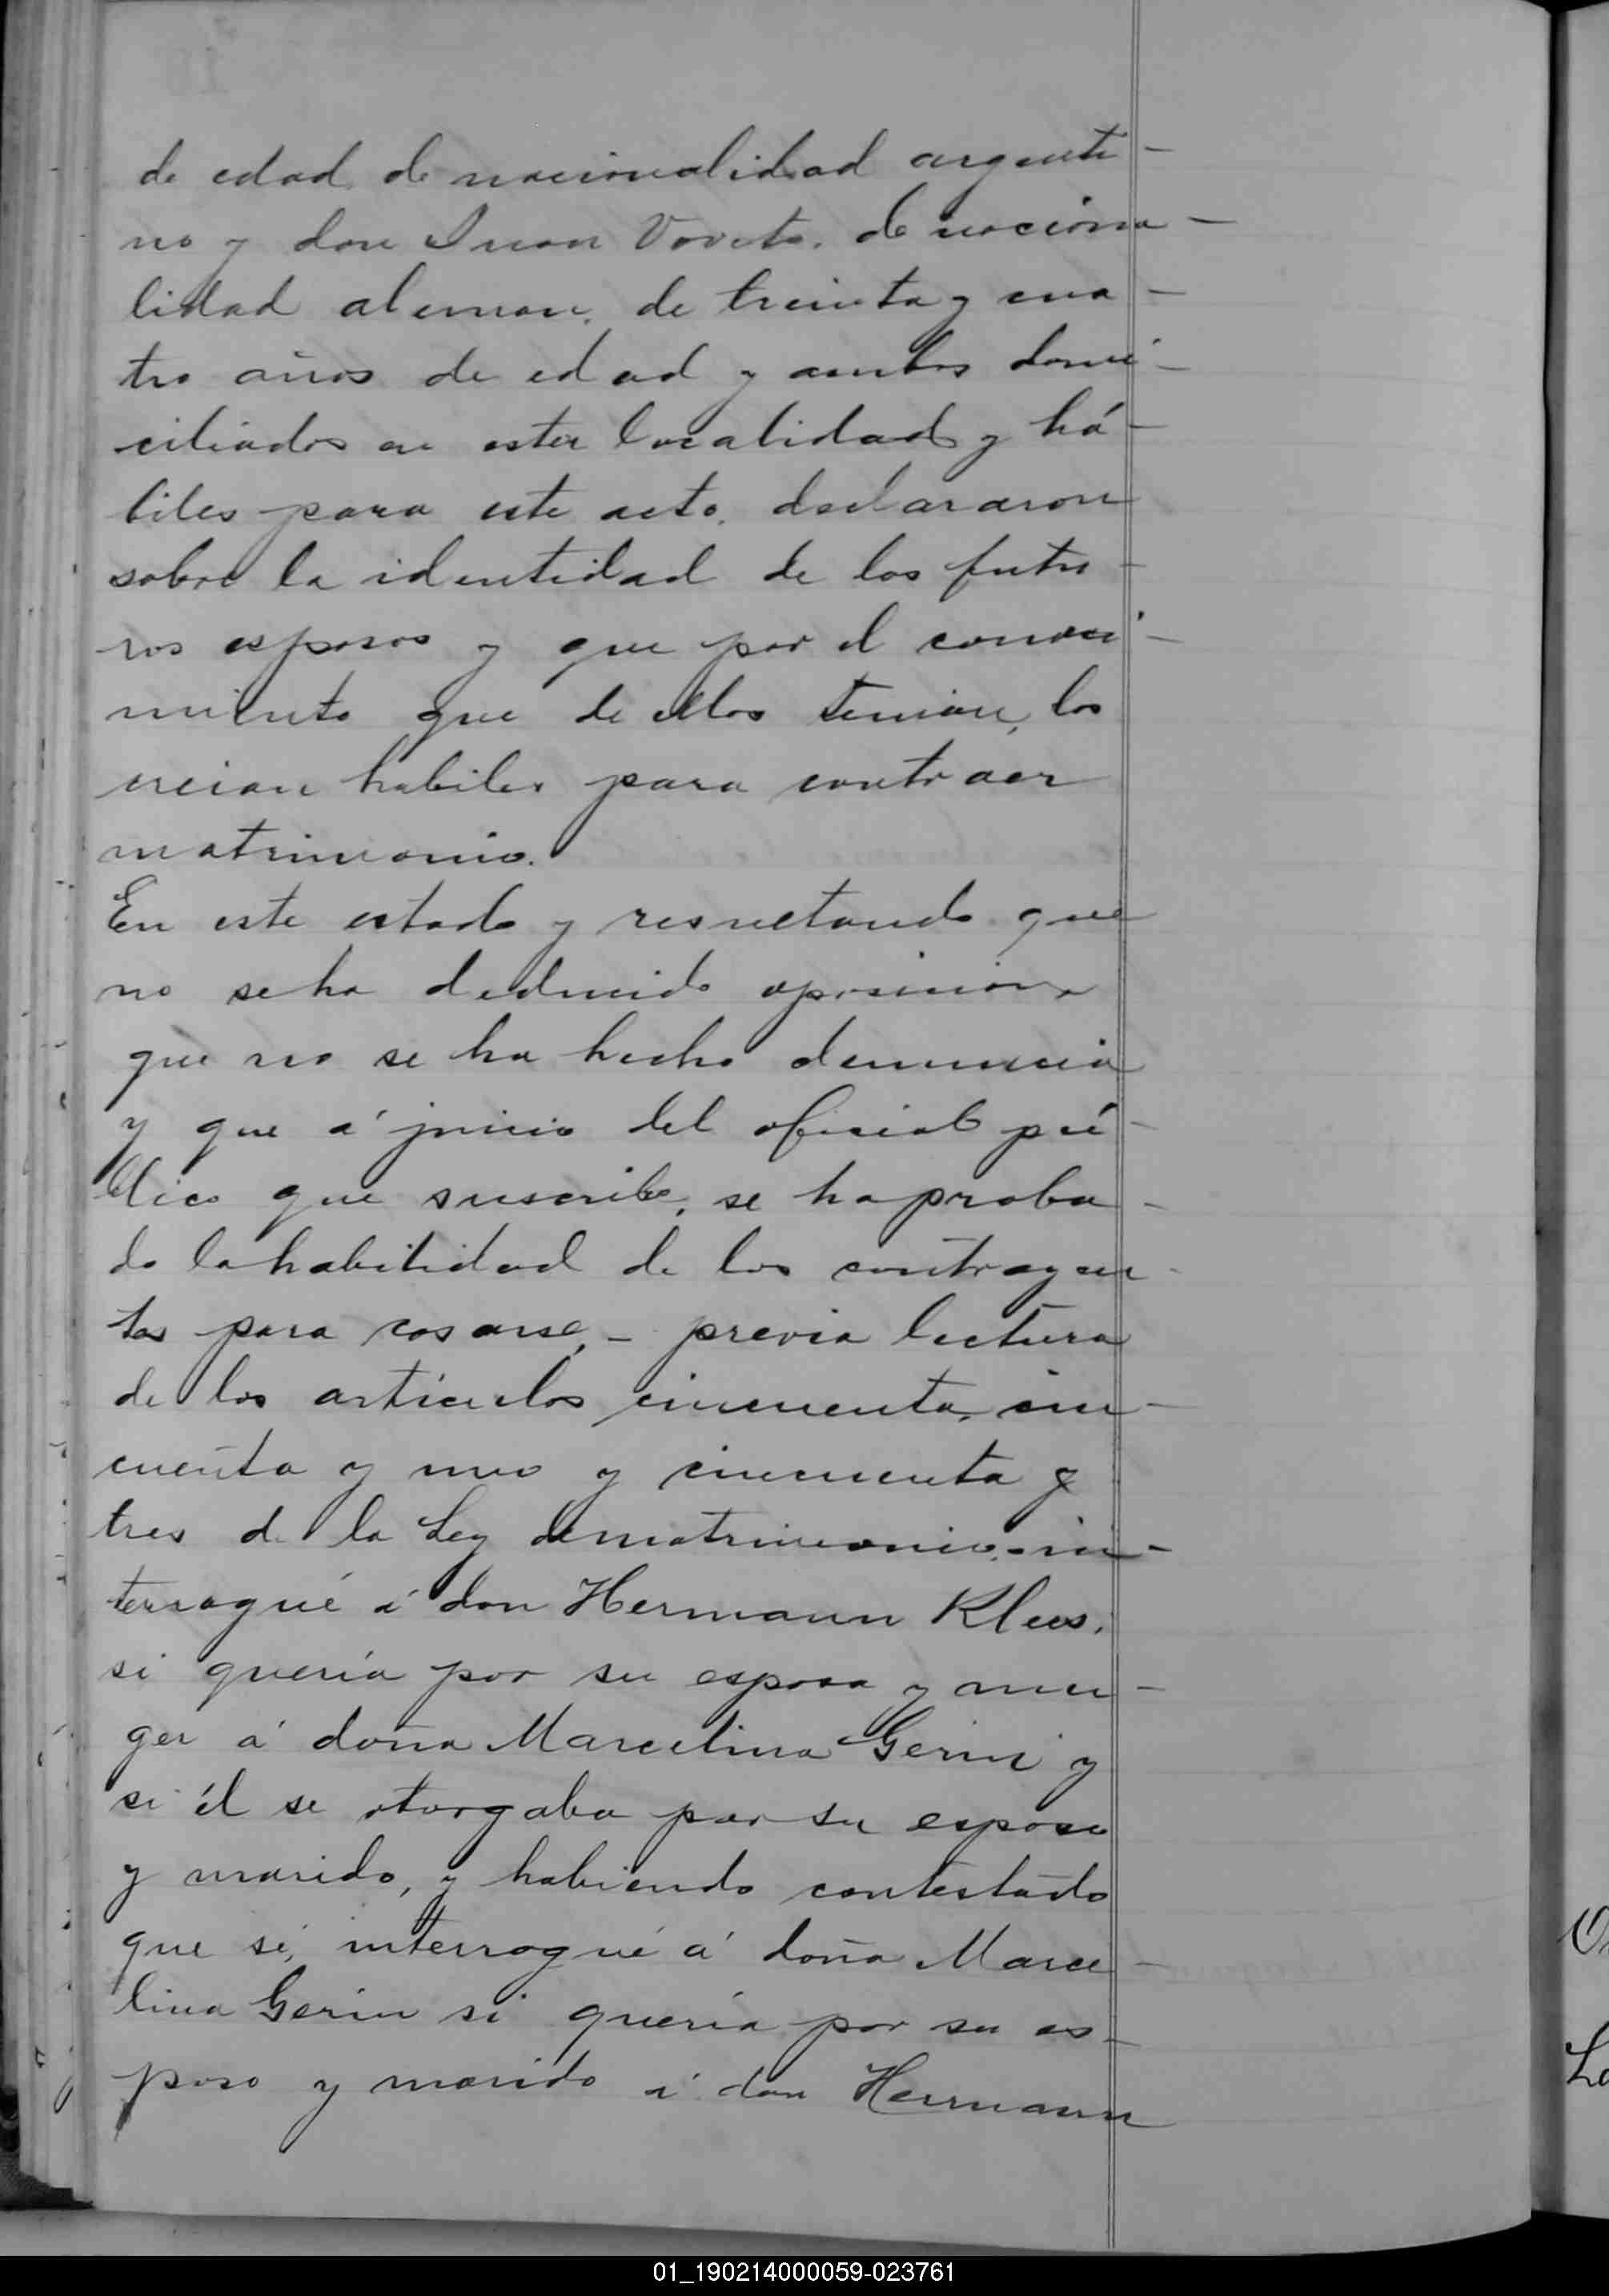 de edad de nacionalidad argenti-
no y don Juan de naciona-
lidad aleman, de treinta y cua-
tro años de edad y ambos domi-
ciliados en esta localidad y há-
biles para este acto, declararon
sobre la identidad de los futu-
ros esposos y que por el conoci-
miento que de ellos tenian, los
creian habiles para contraer
matrimonio.
En este estado y resultando que
no se ha deducido oposicion,
que no se ha hecho denuncia
y que á juicio del oficial pú-
blico que suscribe, se ha proba-
do la habilidad de los contrayen-
tes para casarse, - previa lectura
de los artículos cincuenta, cin-
cuenta y uno y cincuenta y
tres de la Ley de matrimonio, - in-
terrogué á don Hermann Klees,
si quería por su esposa y mu-
ger á doña Marcelina Gerin y
si él se otorgaba por su esposo
y marido, y habiendo contestado
que sí, interrogué á doña Marce-
lina Gerin si quería por su es-
poso y marido á don Hermann
01_190214000059-023761